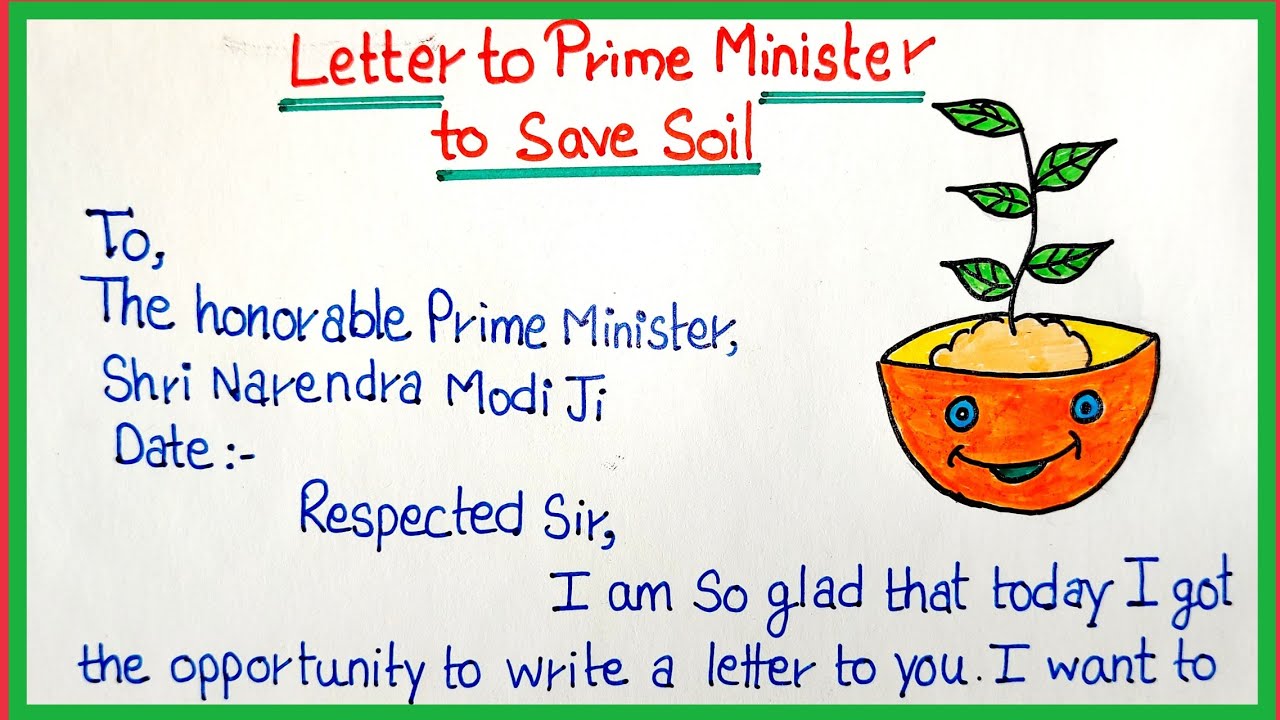 Letter to Prime Minister
to Save Soil
To,
The honorable Prime Minister,
Shri Narendra Modi Ji
Date :-
Respected Sir,
I am So glad that today I got
the opportunity to write a letter to you. I want to